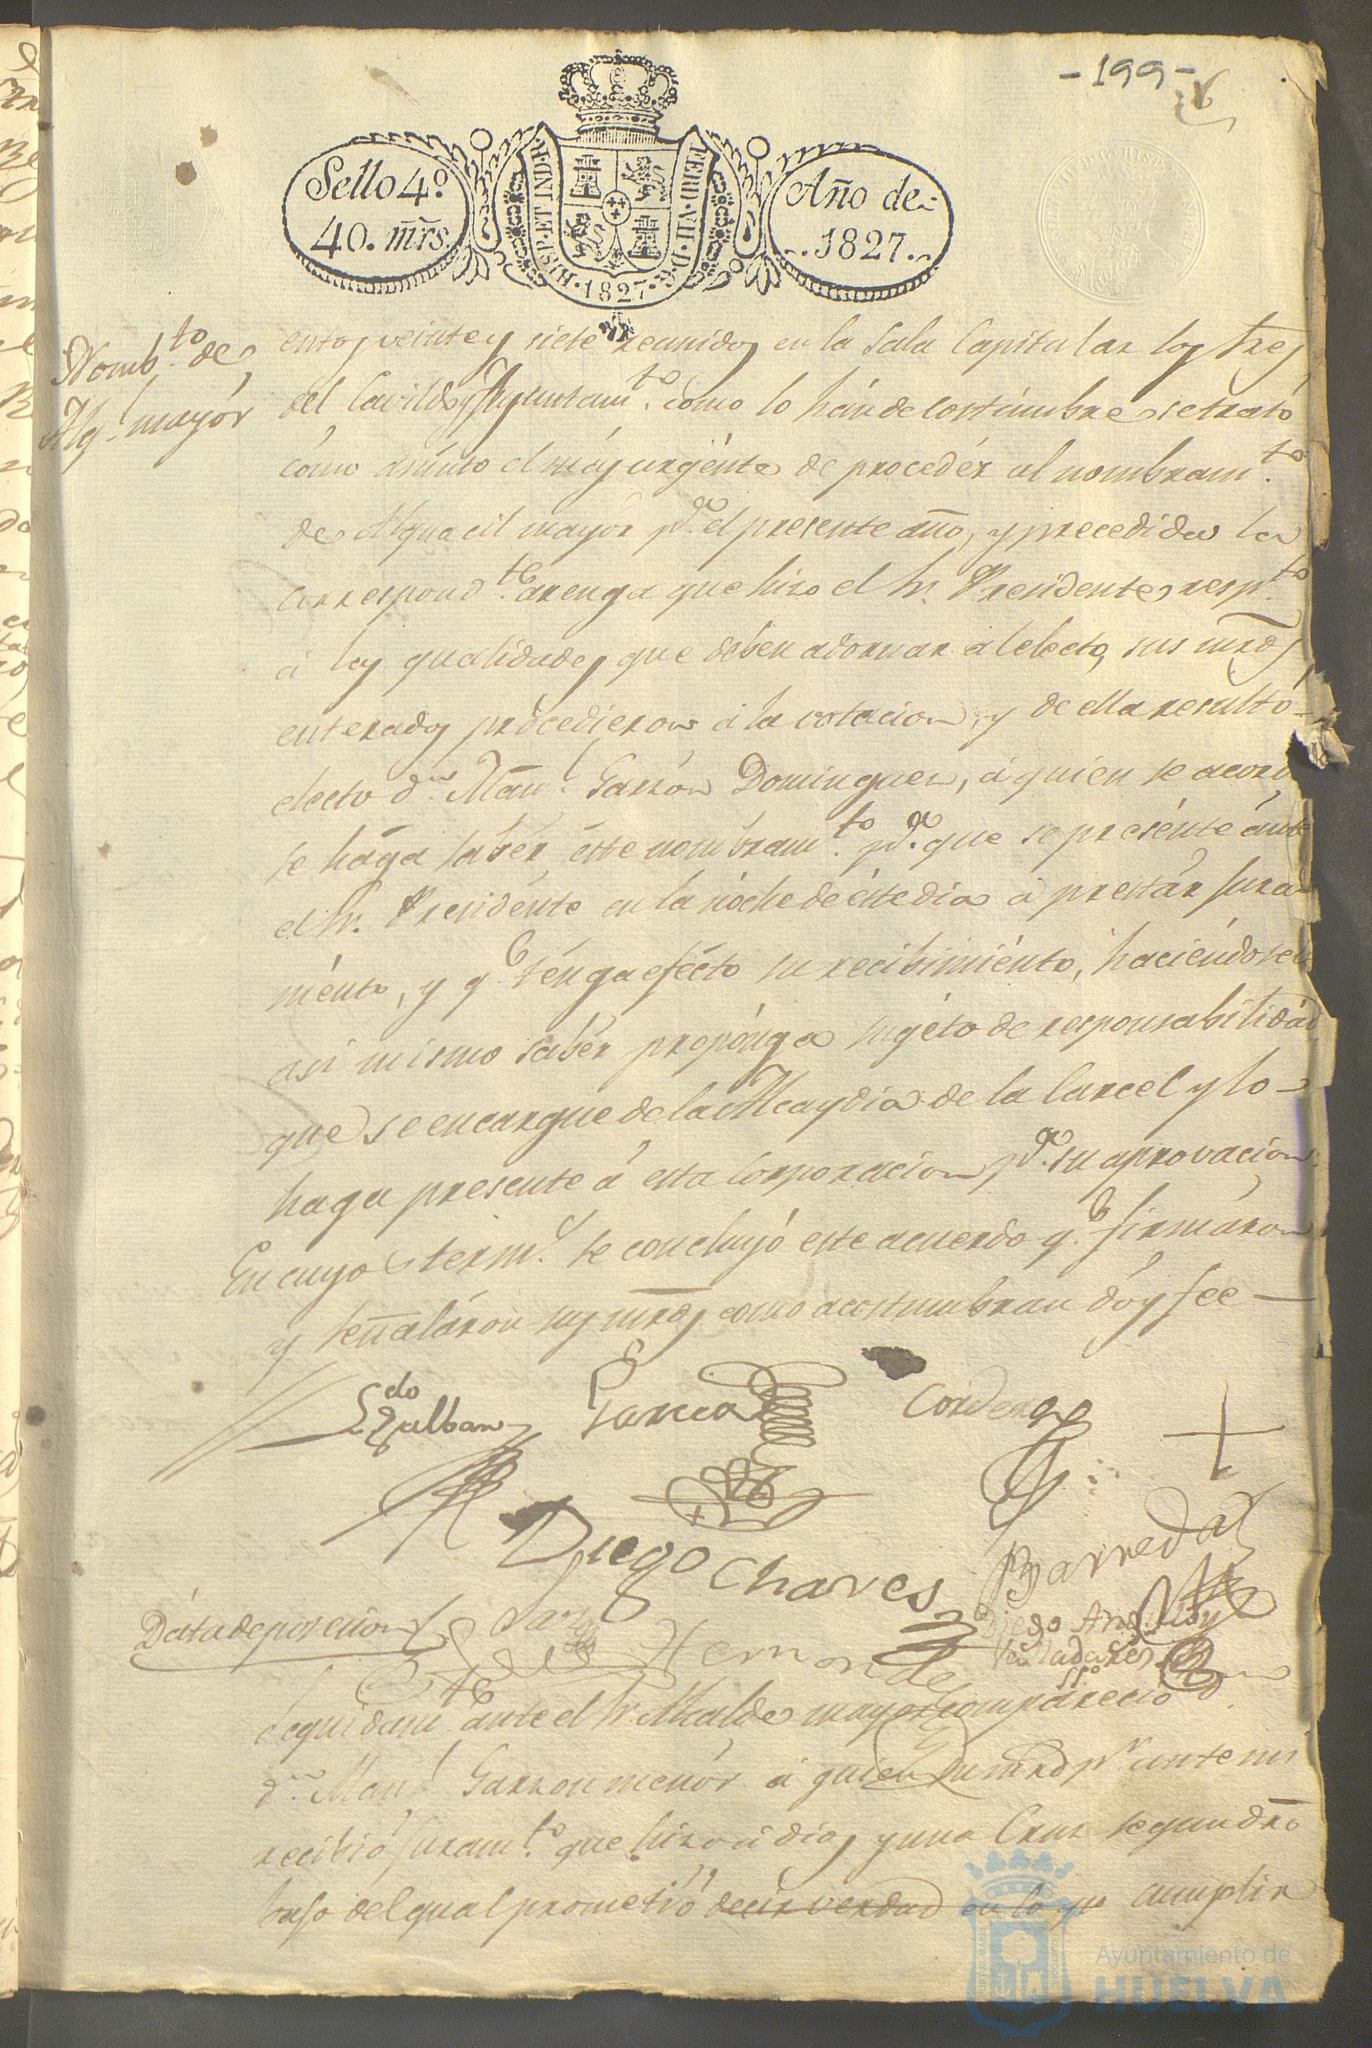 -199-
Sello 4º
40. mrs.
HISP. ET IND. R.
FERD. VII. D. G.
1827
Año de
1827.
Nomb.to de
Alg.l mayór
entos, veinte y siete reunidos en la Sala Capitular los Sres
del Cavildo y Ayuntam.to como lo hán de costúmbre se trató
cómo asúnto el más urgénte de procedér al nombram.to
de Alguacil mayór p.a el presente año, y precedida la
correspond.te arenga que hizo el Sr. Presidente resp.to
á las qualidades que deben adornar al electo, sus mrds
enterados procedieron á la votacion, y de ella resultó
electo d.n Man.l Garzón Dominguez, á quien se acordó
se hága sabér éste nombram.to p.a que se presénte ánte
el Sr. Presidénte en la nóche de éste dia á prestár Jura-
ménto, y q.e ténga efécto su recibimiénto, haciéndosele
asi mismo sabér propónga sugéto de responsabilidad
que se encargue de la Alcaydia de la Carcel y lo
haga presente á esta corporacion p.a su aprovacion.
En cuyo s term.s se concluyó este acuerdo q.e firmáron
y señaláron sus mrds como acostumbran dóy fee
Ldo Galban
Garcia
Cordero
Diego Chaves
Barreda
Hernande
Diego Andr.
Valladares
SSo
Dáta de posesion
Seguidam.te ante el Sr. Alcalde mayor comparecio
d.n Man.l Garzon menór á quien su mrd p.r ante mi
recibió Juram.to que hizo á dios y una Cruz segun dro
bajo del qual prometió decir verdad en lo q.e cumplir
Ayuntamiento de
HUELVA